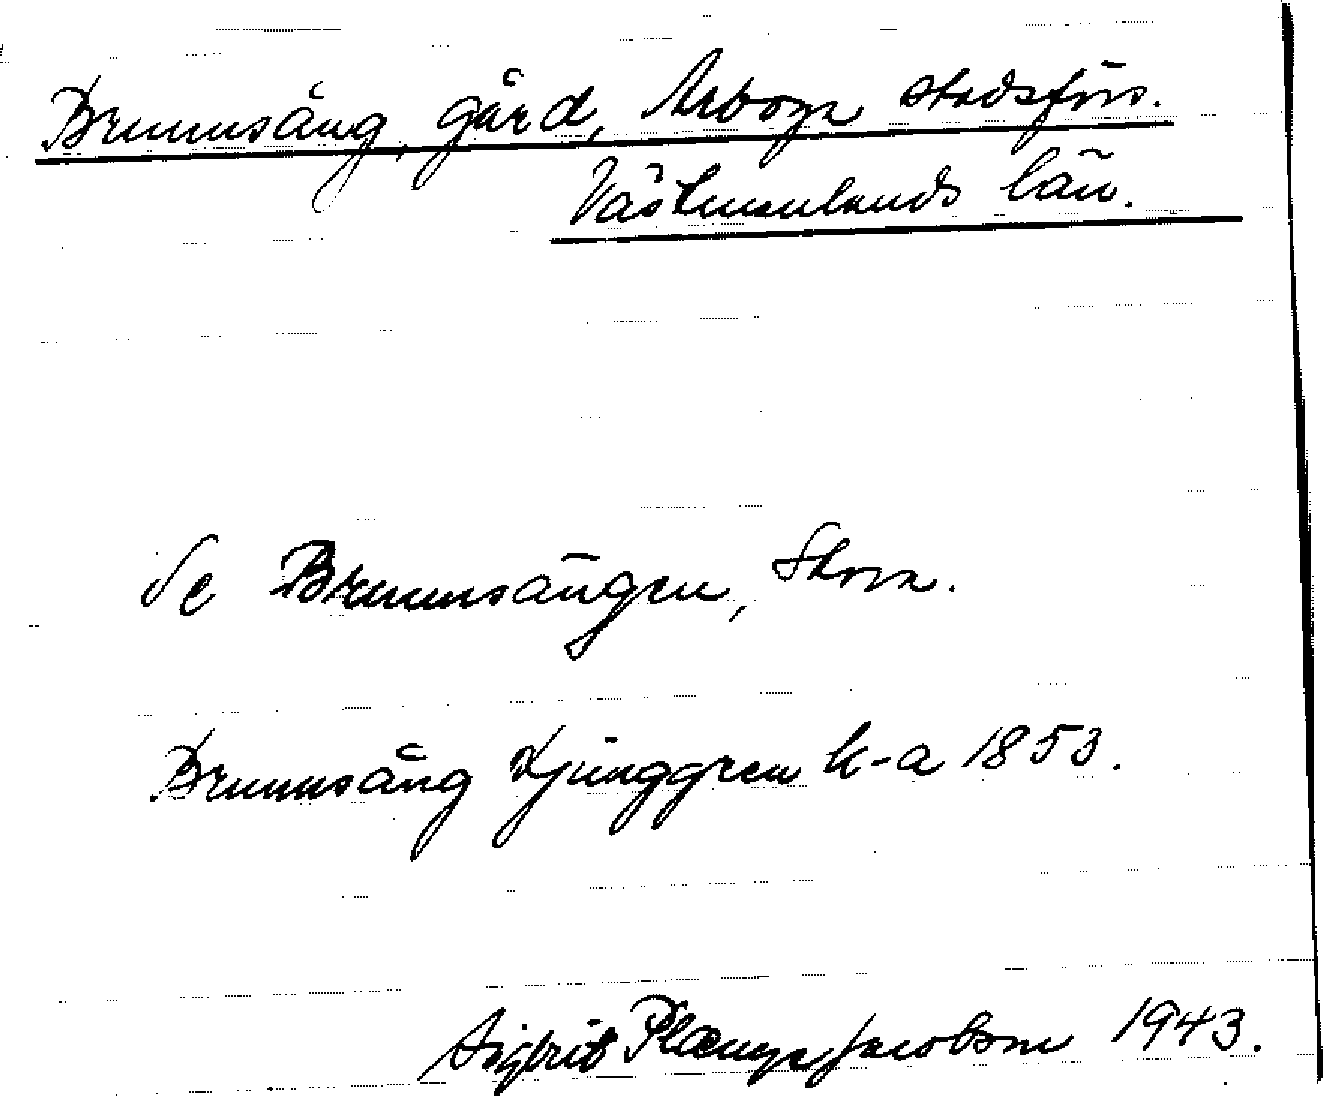 Brunnsäng, gård, Arboga stadsförs.
Västmanlands län.
Se Brunnsängen, Stora.
Brunnsäng Ljunggren k-a 1853.
Sigbrit Plænge Jacobson 1943.